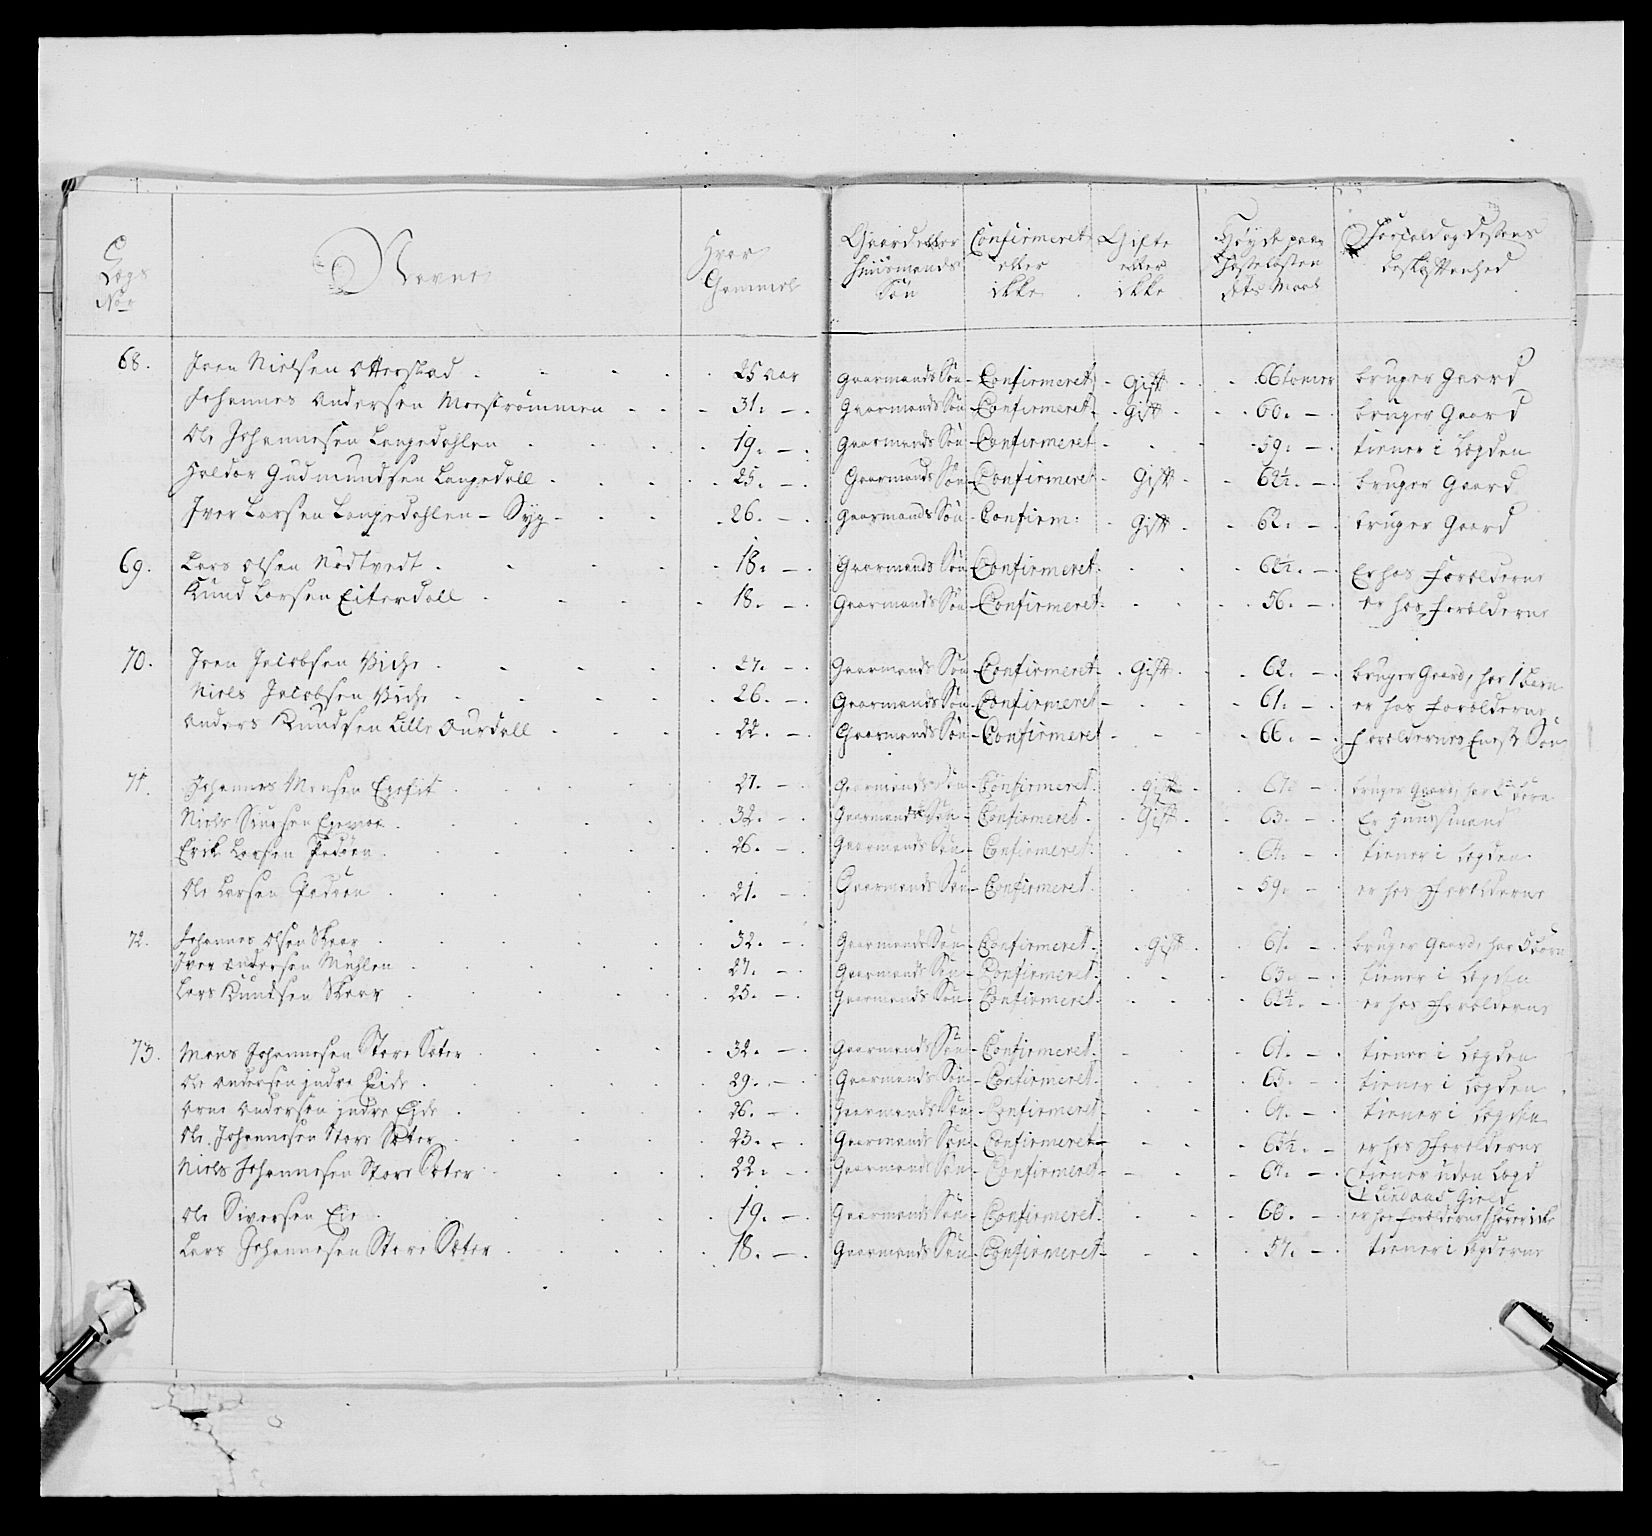 Lægs No Navne Hvor Gammel Gaard eller Huusmands Søn Confirmeret eller ikke Gifte eller ikke Høyde paa
68. Iven Nielsen Otterstad 25 aar Gaarmands Søn Confirmeret Gift 66 tomer bruger Gaard
Johannes Andersen Mostrømmen 31. Gaarmands Søn Confirmeret Gift 60. bruger Gaard
Ole Johannesen Langedahlen 19. Gaarmands Søn Confirmeret 59. tiener i Lægden
Haldor Gudmundsen Langedall 25. Gaarmands Søn Confirmeret Gift 62½. bruger Gaard
Iver Larsen Langedahlen - Syg 26. Gaarmands Søn Confirm: Gift 62. bruger Gaard
69. Lars Olsen Nødtvedt 18. Gaarmands Søn Confirmeret 62½. Er hos Forælderne
Knud Larsen Eiterdall 18. Gaarmands Søn Confirmeret 56. er hos Forælderne
70. Iven Jacobsen Viche 27. Gaarmands Søn Confirmeret Gift 62. bruger Gaard, har 1 barn
Niels Jacobsen Viche 26. Gaarmands Søn Confirmeret 61. er hos Forælderne
Anders Knudsen Lille Ourdall 22. Gaarmands Søn Confirmeret 66. Forældernes Eneste Søn
71. Johannes Monsen 27. Gaarmands Søn Confirmeret Gift bruger Gaard, har børn
Niels 32. Gaarmands Søn Confirmeret Gift 63. Er Huusmand
Erik Larsen 26. Gaarmands Søn Confirmeret tiener i Lægden
Ole Larsen 21. Gaarmands Søn Confirmeret 59. er hos Forælderne
72. Johannes Olsen Skaar 32. Gaarmands Søn Confirmeret Gift 61. bruger Gaard, har 5 børn
Iver Andersen Mühlen 27. Gaarmands Søn Confirmeret 63. tiener i Lægden
Lars Knudsen Skaar 25. Gaarmands Søn Confirmeret 62½. er hos Forælderne
73. Mons Johannesen Store Sæter 32. Gaarmands Søn Confirmeret 61. tiener i Lægden
Ole Andersen indre Eide 29. Gaarmands Søn Confirmeret 65. tiener i Lægden
Arne Andersen indre Eide 26. Gaarmands Søn Confirmeret tiener i Lægden
Ole Johannesen Store Sæter 23. Gaarmands Søn Confirmeret er hos Forælderne
Niels Johannesen Store Sæter 22. Gaarmands Søn Confirmeret tiener uden Lægd
Ole Siversen Eie 19. Gaarmands Søn Confirmeret 60. er hos Forælderne, hører ikke
Lars Johannesen Store Sæter 18. Gaarmands Søn Confirmeret 57. tiener i Lægderne